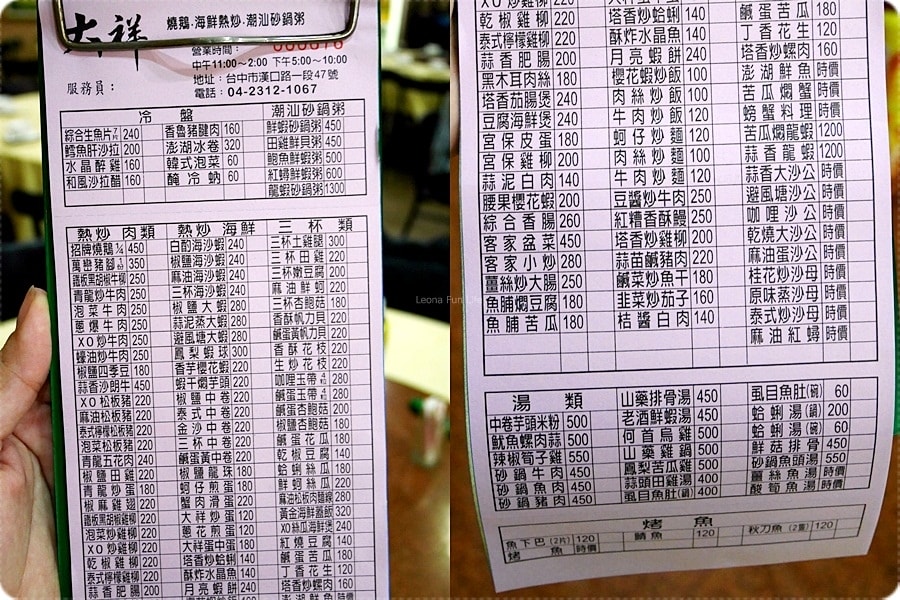 大祥 燒鵝‧海鮮熱炒‧潮汕砂鍋粥
營業時間:
中午11:00~2:00 下午5:00~10:00
地址:台中市漢口路一段47號
服務員:
電話:04-2312-1067
冷盤 潮汕砂鍋粥
綜合生魚片 240 香魯豬腱肉 160 鮮蝦砂鍋粥 450
鱈魚肝沙拉 200 澎湖冰卷 320 田雞鮮貝粥 450
水晶醉雞 160 韓式泡菜 60 鮑魚鮮蝦粥 500
和風沙拉醋 160 醃冷蚋 60 紅蟳鮮蝦粥 600
龍蝦砂鍋粥 1300
熱炒肉類 熱炒海鮮 三杯類
招牌燒鵝¼ 450 白酌海沙蝦 240 三杯土雞腿 300
萬巒豬腳 350 椒鹽海沙蝦 240 三杯田雞 220
鐵板黑胡椒牛柳 250 麻油海沙蝦 240 三杯嫩豆腐 200
青龍炒牛肉 250 三杯海沙蝦 240 麻油鮮蚵 220
泡菜牛肉 250 椒鹽大蝦 280 三杯杏鮑菇 180
蔥爆牛肉 250 蒜泥蒸大蝦 280 香酥帆力貝 220
XO炒牛肉 250 避風塘大蝦 280 鹹蛋黃帆力貝 220
蠔油炒牛肉 250 鳳梨蝦球 300 香酥花枝 220
椒鹽四季豆 180 香芋櫻花蝦 220 生炒花枝 220
蒜香沙朗牛 450 蝦干燜芋頭 220 咖哩玉帶 280
XO松板豬 220 椒鹽中卷 220 鹹蛋玉帶 280
麻油松板豬 220 泰式中卷 220 鹹蛋杏鮑菇 200
泰式檸檬松板豬 220 金沙中卷 220 椒鹽杏鮑菇 180
泡菜松板豬 220 三杯中卷 220 鹹蛋花瓜 180
青龍五花肉 240 鹹蛋黃中卷 220 乾椒豆腐 140
椒鹽田雞 220 椒鹽龍珠 180 蛤蜊絲瓜 180
青龍炒蛋 180 蚵仔煎蛋 180 鮮蚵絲瓜 220
椒麻雞翅 220 蟹肉滑蛋 220 麻油松板肉麵線 280
鐵板黑胡椒雞柳 220 大祥炒蛋 120 黃金海鮮蓋飯 320
泡菜炒雞柳 220 蔥花煎蛋 120 XO絲瓜海鮮煲 240
XO炒雞柳 220 大祥蛋中蛋 180 紅燒豆腐 140
乾椒雞柳 220 塔香炒蛤蜊 140 鹹蛋苦瓜 180
泰式檸檬雞柳 220 酥炸水晶魚 140 丁香花生 120
蒜香肥腸 200 月亮蝦餅 240 塔香炒螺肉 160
XO炒雞柳 220
乾椒雞柳 220 塔香炒蛤蜊 140 鹹蛋苦瓜 180
泰式檸檬雞柳 220 酥炸水晶魚 140 丁香花生 120
蒜香肥腸 200 月亮蝦餅 240 塔香炒螺肉 160
黑木耳肉絲 180 櫻花蝦炒飯 100 澎湖鮮魚 時價
塔香茄腸煲 240 肉絲炒飯 100 苦瓜燜蟹 時價
豆腐海鮮煲 240 牛肉炒飯 120 螃蟹料理 時價
宮保皮蛋 180 蚵仔炒麵 120 苦瓜燜龍蝦 1200
宮保雞柳 200 肉絲炒麵 100 蒜香龍蝦 1200
蒜泥白肉 140 牛肉炒麵 120 蒜香大沙公 時價
腰果櫻花蝦 200 豆醬炒牛肉 250 避風塘大沙 時價
綜合香腸 260 紅糟香酥鰻 250 咖哩沙公 時價
客家盆菜 450 塔香炒雞柳 200 乾燒大沙公 時價
客家小炒 280 蒜苗鹹豬肉 220 麻油蛋沙公 時價
薑絲炒大腸 250 鹹菜炒魚干 180 桂花炒沙母 時價
魚脯燜豆腐 180 韭菜炒茄子 160 原味蒸沙母 時價
魚脯苦瓜 180 桔醬白肉 140 泰式炒沙母 時價
麻油紅蟳 時價
湯類 山藥排骨湯 450 虱目魚肚(碗) 60
中卷芋頭米粉 500 老酒鮮蝦湯 450 蛤蜊湯(鍋) 200
魷魚螺肉蒜 500 何首烏雞 500 蛤蜊湯(碗) 60
辣椒筍子雞 550 山藥雞鍋 500 鮮菇排骨 450
砂鍋牛肉 450 鳳梨苦瓜雞 500 砂鍋魚頭湯 550
砂鍋魚肉 450 蒜頭田雞湯 400 薑絲魚湯 時價
砂鍋豬肉 450 虱目魚肚(鍋) 400 酸筍魚湯 時價
烤魚
魚下巴(2片) 120 鯖魚 120 秋刀魚(2隻) 120
烤魚 時價
Leona Fun Life